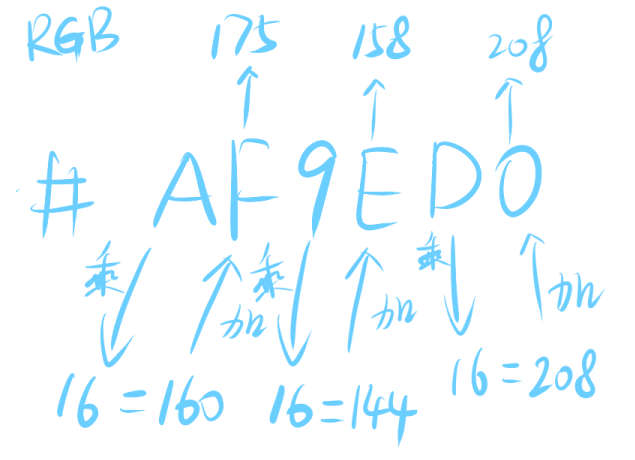 RGB 175 158 208
# AF9ED0
乘 加 乘 加 乘 加
16=160 16=144 16=208